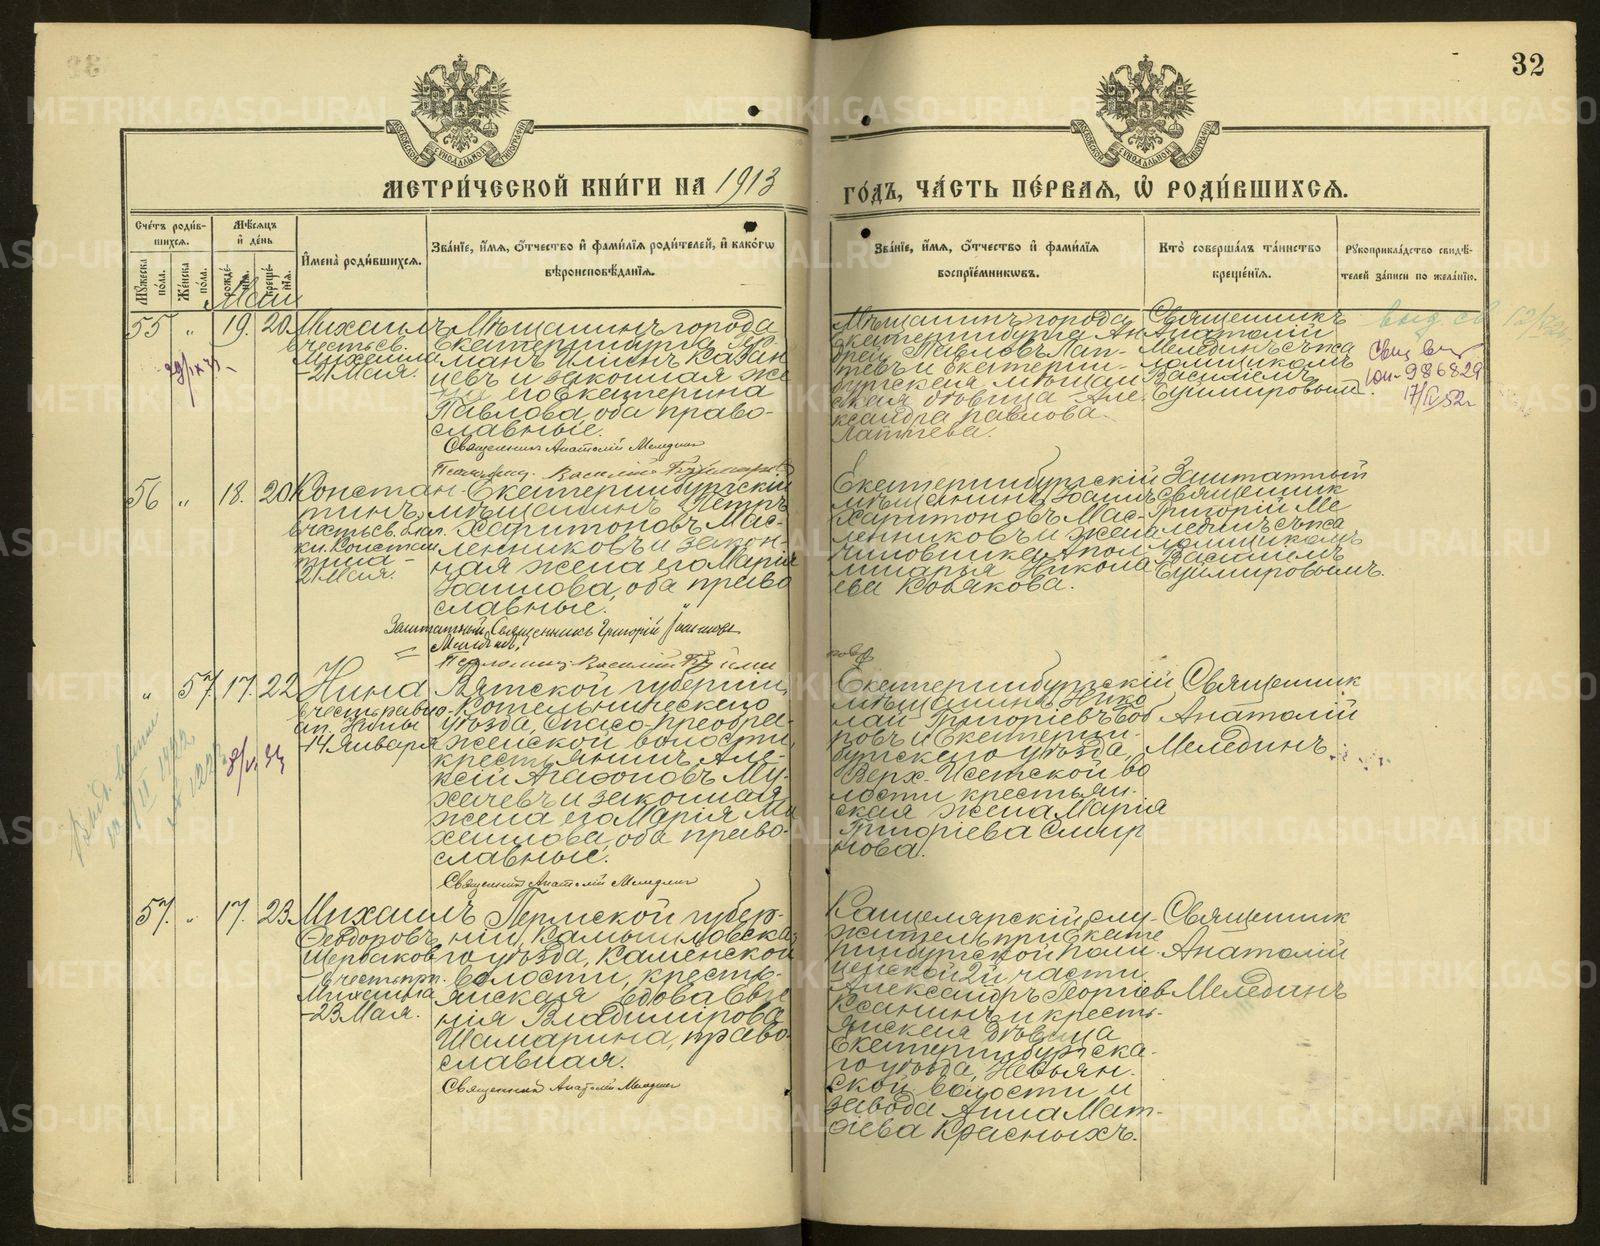 32
МЕТРИ́ЧЕСКОЙ КНИ́ГИ НА 1913
ГО́ДЪ, ЧА́СТЬ ПЕ́РВАѦ, Ѡ҆ РОДИ́ВШИХСѦ.
Сче́тъ роди́в-
шихсѧ.
Мꙋ́жеска по́ла.
Же́нска по́ла.
Мѣ́сѧцъ и҆ де́нь
рожде́нїѧ.
креще́нїѧ.
И҆мена̀ роди́вшихсѧ.
Зва́нїе, и҆́мѧ, ѻ҆́тчество и҆ фами́лїѧ роди́телей, и҆ како́гѡ
вѣроисповѣ́данїѧ.
Зва́нїе, и҆́мѧ, ѻ҆́тчество и҆ фами́лїѧ
воспрїе́мникѡвъ.
Кто̀ соверша́лъ та́инство
креще́нїѧ.
Рꙋкоприкла́дство свидѣ́-
телей за́писи по жела́нїю.
Май
55 " 19. 20
Михаилъ
въ честь св.
Михаила
- 21 Мая.
Мѣщанинъ города
Екатеринбурга Гер-
манъ Илiинъ Казан
цевъ и законная же
на его Екатерина
Павлова, оба право-
славные.
Священникъ Анатолiй Мелединъ
Псаломщ. Василiй Буймировъ
Мѣщанинъ города
Екатеринбурга Ан
дрей Павловъ Лап-
тевъ и Екатерин-
бургская мѣщан
ская дѣвица Але
ксандра Павлова
Лаптева.
Священникъ
Анатолiй
Мелединъ съ пса
ломщикомъ
Василiемъ
Буймировымъ.
выд. св. 12/
Свид. выд.
юп - 986829
17/IV 52 г
56 " 18. 20
Констан-
тинъ,
въ честь св. благ.
кн. Констан
тина -
21 Мая.
Екатеринбургскiй
мѣщанинъ Петръ
Харитоновъ Мас-
ленниковъ и закон-
ная жена его Марiя
Iоаннова, оба право
славные.
Заштатный Священникъ Григорiй Iоанновъ
Мелединъ.
Псаломщ. Василiй Буйми
ровъ
Екатеринбургскiй
мѣщанинъ Iоаннъ
Харитоновъ Мас-
ленниковъ и жена
чиновника Апол-
линарья Никола
ева Кобякова.
Заштатный
священник
Григорiй Ме
лединъ съ пса
ломщикомъ
Василiемъ
Буймировымъ.
" 57. 17. 22
Нина
въ честь равно-
ап. Нины
- 14 Января
Вятской губернiи,
Котельническаго
уѣзда, Спасо-Преобра-
женской волости,
крестьянинъ Але-
ксiй Агафоновъ Му-
хачевъ и законная
жена его Марiя Ми
хаилова, оба право-
славные.
Священникъ Анатолiй Мелединъ
Екатеринбургскiй
мѣщанинъ Нико
лай Григорiевъ Боб
ровъ и Екатерин-
бургскаго уѣзда,
Верх-Исетской во
лости крестьян-
ская жена Марiя
Григорiева Смир
нова.
Священник
Анатолiй
Мелединъ.
57. " 17. 23.
Михаилъ
Феодоровъ
Щербаковъ
- въ честь прп.
Михаила
- 23 Мая.
Пермской губер-
нiи, Камышловска
го уѣзда, Каменской
волости, крестья-
янская вдова Евге
нiя Владимiрова
Шамарина, право-
славная.
Священникъ Анатолiй Мелединъ
Канцелярскiй слу-
житель при Екате
ринбургской поли-
цейской 2й части
Александръ Георгiев
Ксанинъ и кресть-
янская дѣвица
Екатеринбургска-
го уѣзда, Невьян-
ской волости и
завода Анна Мат-
ѳiева Красныхъ.
Священник
Анатолiй
Мелединъ